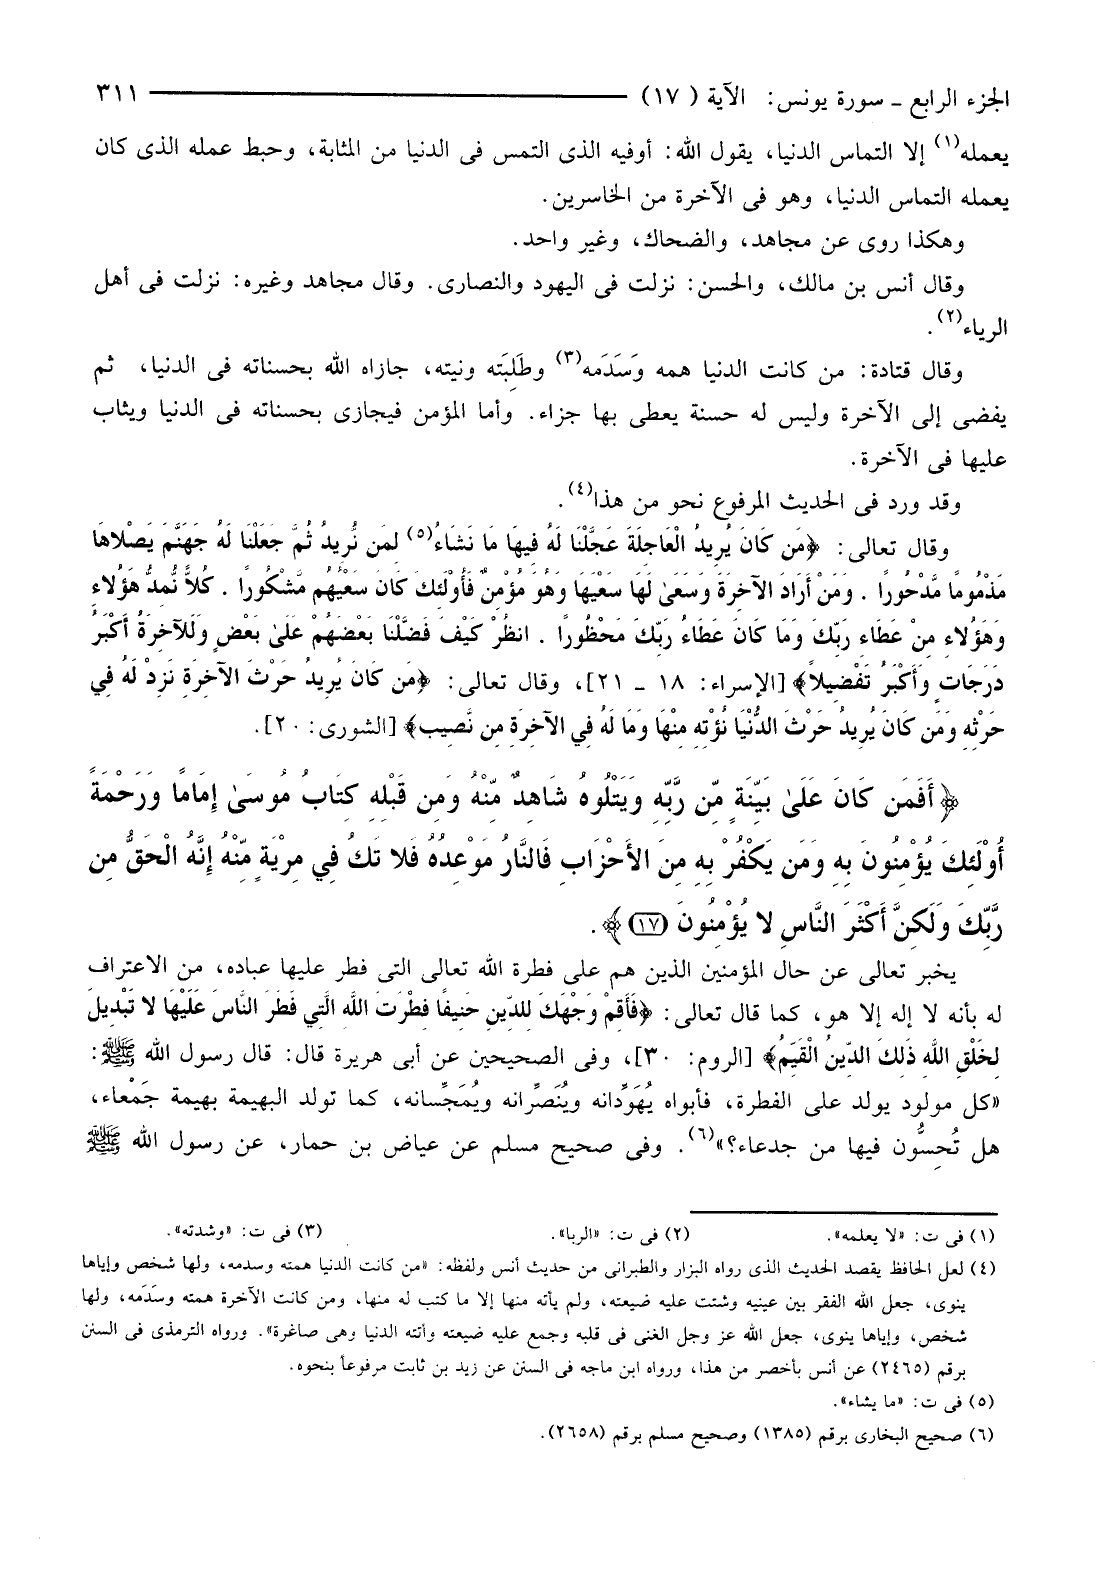 الجزء الرابع ـ سورة يونس: الآية ( ١٧) ٣١١
يعمله(١) إلا التماس الدنيا، يقول الله: أوفيه الذى التمس فى الدنيا من المثابة، وحبط عمله الذى كان
يعمله التماس الدنيا، وهو فى الآخرة من الخاسرين.
وهكذا روى عن مجاهد، والضحاك، وغير واحد.
وقال أنس بن مالك، والحسن: نزلت فى اليهود والنصارى. وقال مجاهد وغيره: نزلت فى أهل
الرياء(٢).
وقال قتادة: من كانت الدنيا همه وَسَدَمَه(٣) وطَلِبَتَه ونيته، جازاه الله بحسناته فى الدنيا، ثم
يفضى إلى الآخرة وليس له حسنة يعطى بها جزاء. وأما المؤمن فيجازى بحسناته فى الدنيا ويثاب
عليها فى الآخرة.
وقد ورد فى الحديث المرفوع نحو من هذا(٤).
وقال تعالى: ﴿مَن كَانَ يُرِيدُ الْعَاجِلَةَ عَجَّلْنَا لَهُ فِيهَا مَا نَشَاءُ(٥) لِمَن نُّرِيدُ ثُمَّ جَعَلْنَا لَهُ جَهَنَّمَ يَصْلاهَا
مَذْمُومًا مَّدْحُورًا . وَمَنْ أَرَادَ الآخِرَةَ وَسَعَىٰ لَهَا سَعْيَهَا وَهُوَ مُؤْمِنٌ فَأُوْلَئِكَ كَانَ سَعْيُهُم مَّشْكُورًا . كُلاًّ نُّمِدُّ هَؤُلاءِ
وَهَؤُلاءِ مِنْ عَطَاءِ رَبِّكَ وَمَا كَانَ عَطَاءُ رَبِّكَ مَحْظُورًا . انظُرْ كَيْفَ فَضَّلْنَا بَعْضَهُمْ عَلَىٰ بَعْضٍ وَلَلآخِرَةُ أَكْبَرُ
دَرَجَاتٍ وَأَكْبَرُ تَفْضِيلاً﴾ [الإسراء: ١٨ ـ ٢١]، وقال تعالى: ﴿مَن كَانَ يُرِيدُ حَرْثَ الآخِرَةِ نَزِدْ لَهُ فِي
حَرْثِهِ وَمَن كَانَ يُرِيدُ حَرْثَ الدُّنْيَا نُؤْتِهِ مِنْهَا وَمَا لَهُ فِي الآخِرَةِ مِن نَّصِيبٍ﴾ [الشورى: ٢٠].
﴿أَفَمَن كَانَ عَلَىٰ بَيِّنَةٍ مِّن رَّبِّهِ وَيَتْلُوهُ شَاهِدٌ مِّنْهُ وَمِن قَبْلِهِ كِتَابُ مُوسَىٰ إِمَامًا وَرَحْمَةً
أُوْلَئِكَ يُؤْمِنُونَ بِهِ وَمَن يَكْفُرْ بِهِ مِنَ الأَحْزَابِ فَالنَّارُ مَوْعِدُهُ فَلا تَكُ فِي مِرْيَةٍ مِّنْهُ إِنَّهُ الْحَقُّ مِن
رَّبِّكَ وَلَكِنَّ أَكْثَرَ النَّاسِ لا يُؤْمِنُونَ (١٧)﴾.
يخبر تعالى عن حال المؤمنين الذين هم على فطرة الله تعالى التى فطر عليها عباده، من الاعتراف
له بأنه لا إله إلا هو، كما قال تعالى: ﴿فَأَقِمْ وَجْهَكَ لِلدِّينِ حَنِيفًا فِطْرَتَ اللَّهِ الَّتِي فَطَرَ النَّاسَ عَلَيْهَا لا تَبْدِيلَ
لِخَلْقِ اللَّهِ ذَلِكَ الدِّينُ الْقَيِّمُ﴾ [الروم: ٣٠]، وفى الصحيحين عن أبى هريرة قال: قال رسول الله ﷺ:
«كل مولود يولد على الفطرة، فأبواه يُهَوِّدَانه ويُنَصِّرانه ويُمَجِّسانه، كما تولد البهيمة بهيمة جَمْعاء،
هل تُحِسُّون فيها من جدعاء؟»(٦). وفى صحيح مسلم عن عياض بن حمار، عن رسول الله ﷺ
(١) فى ت: «لا يعلمه». (٢) فى ت: «الربا». (٣) فى ت: «وشدته».
(٤) لعل الحافظ يقصد الحديث الذى رواه البزار والطبرانى من حديث أنس ولفظه: «من كانت الدنيا همته وسدمه، ولها شخص وإياها
ينوى، جعل الله الفقر بين عينيه وشتت عليه ضيعته، ولم يأته منها إلا ما كتب له منها، ومن كانت الآخرة همته وسَدَمَه، ولها
شخص، وإياها ينوى، جعل الله عز وجل الغنى فى قلبه وجمع عليه ضيعته وأتته الدنيا وهى صاغرة». ورواه الترمذى فى السنن
برقم (٢٤٦٥) عن أنس بأخصر من هذا، ورواه ابن ماجه فى السنن عن زيد بن ثابت مرفوعاً بنحوه.
(٥) فى ت: «ما يشاء».
(٦) صحيح البخارى برقم (١٣٨٥) وصحيح مسلم برقم (٢٦٥٨).